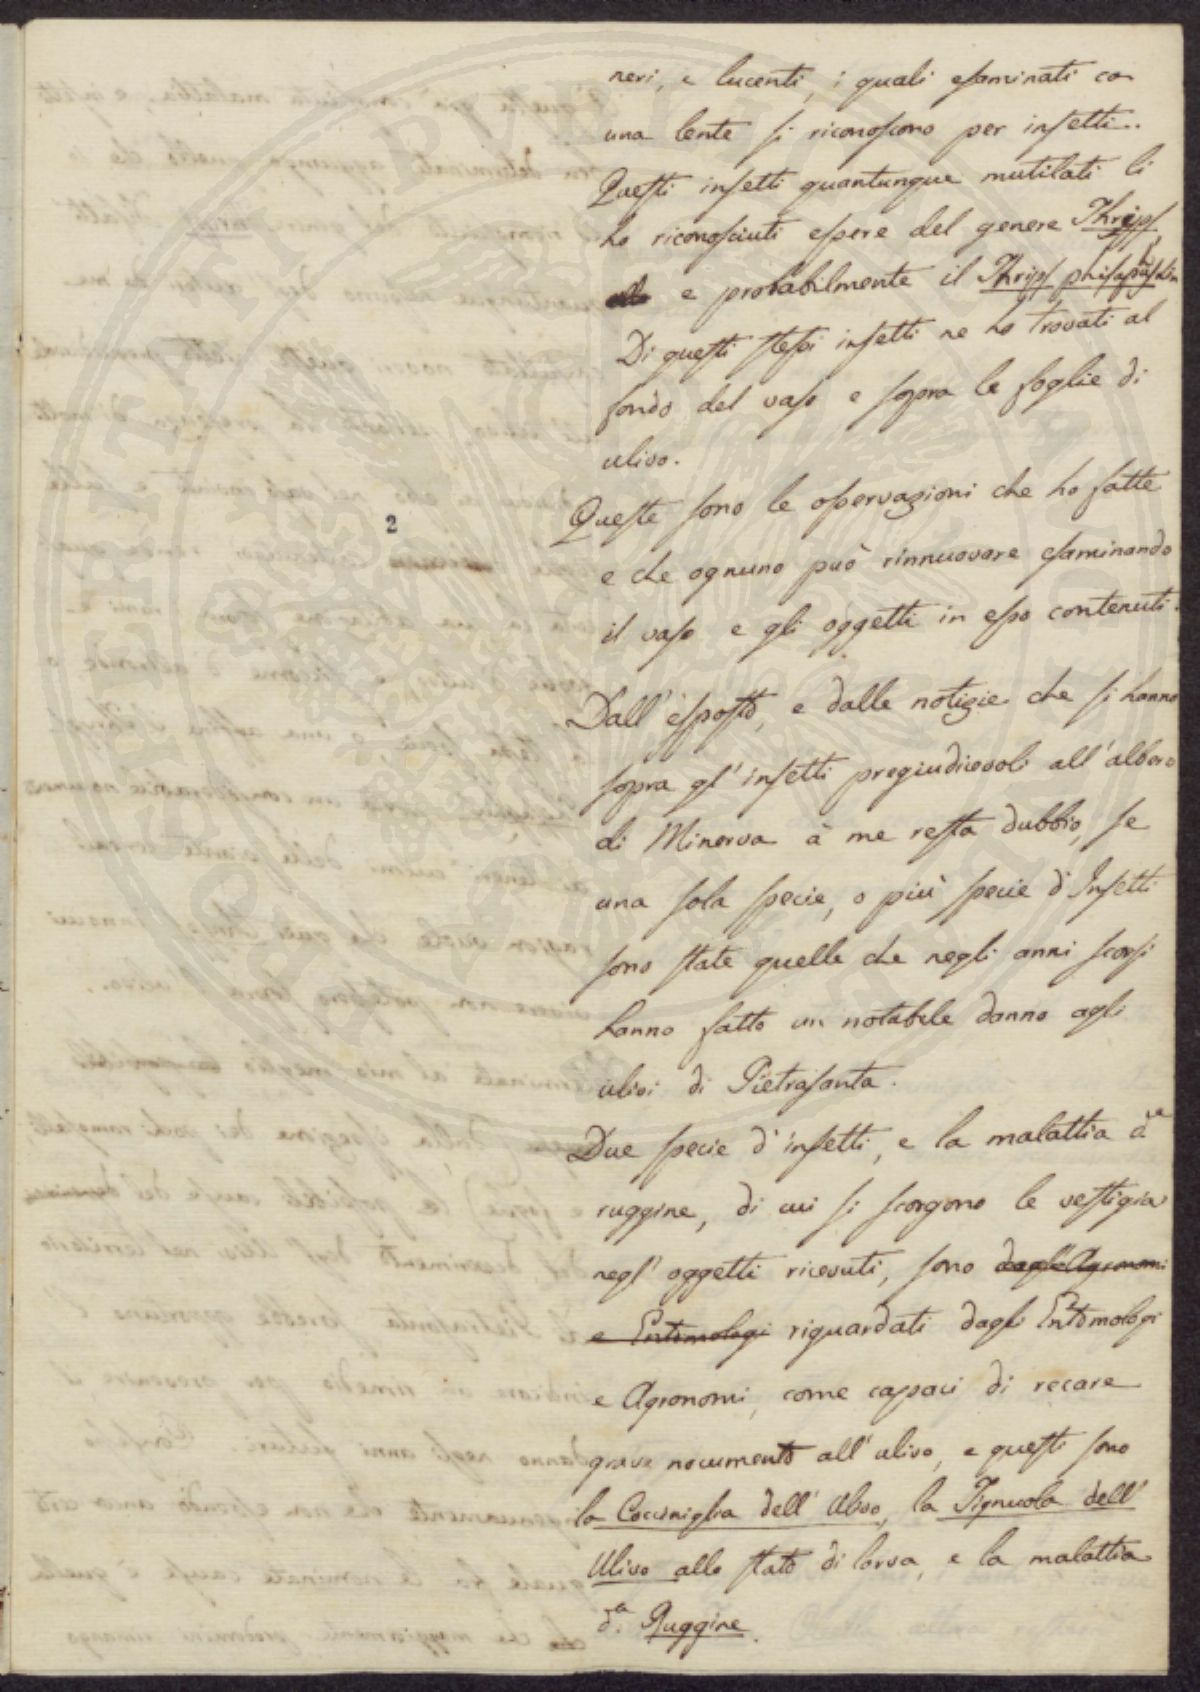 neri, e lucenti, i quali esaminati co
una lente si riconoscono per insetti..
Questi insetti quantunque mutilati li
ho riconosciuti essere del genere Thrips
e probabilmente il Thrips
Di questi stessi insetti ne ho trovati al
fondo del vaso e sopra le foglie di
ulivo.
Queste sono le osservazioni che ho fatte
2
e che ognuno può rinnuovare esaminando
il vaso e gli oggetti in esso contenuti.
Dall'esposto, e dalle notizie che si hanno
sopra gl'insetti pregiudicevoli all'albero
di Minerva à me resta dubbio, se
una sola specie, o più specie d'Insetti
sono state quelle che negli anni scorsi
hanno fatto un notabile danno agli
ulivi di Pietrasanta.
Due specie d'insetti, e la malattia d.a
ruggine, di cui si scorgono le vestigia
negl'oggetti ricevuti, sono dagl'Agronomi
e Entomologi riguardati dagli Entomologi
e Agronomi, come capaci di recare
grave nocumento all'ulivo, e questi sono
la Cocciniglia dell'Ulivo, la Tignuola dell'
Ulivo allo stato di larva, e la malattia
d.a Ruggine.